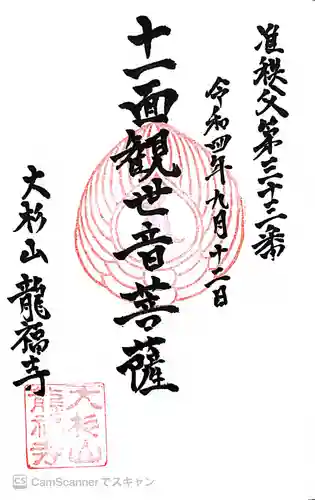 准秩父第三十三番
令和四年九月十二日
十一面観世音菩薩
大杉山 龍福寺
大杉山
龍福寺
CS CamScannerでスキャン